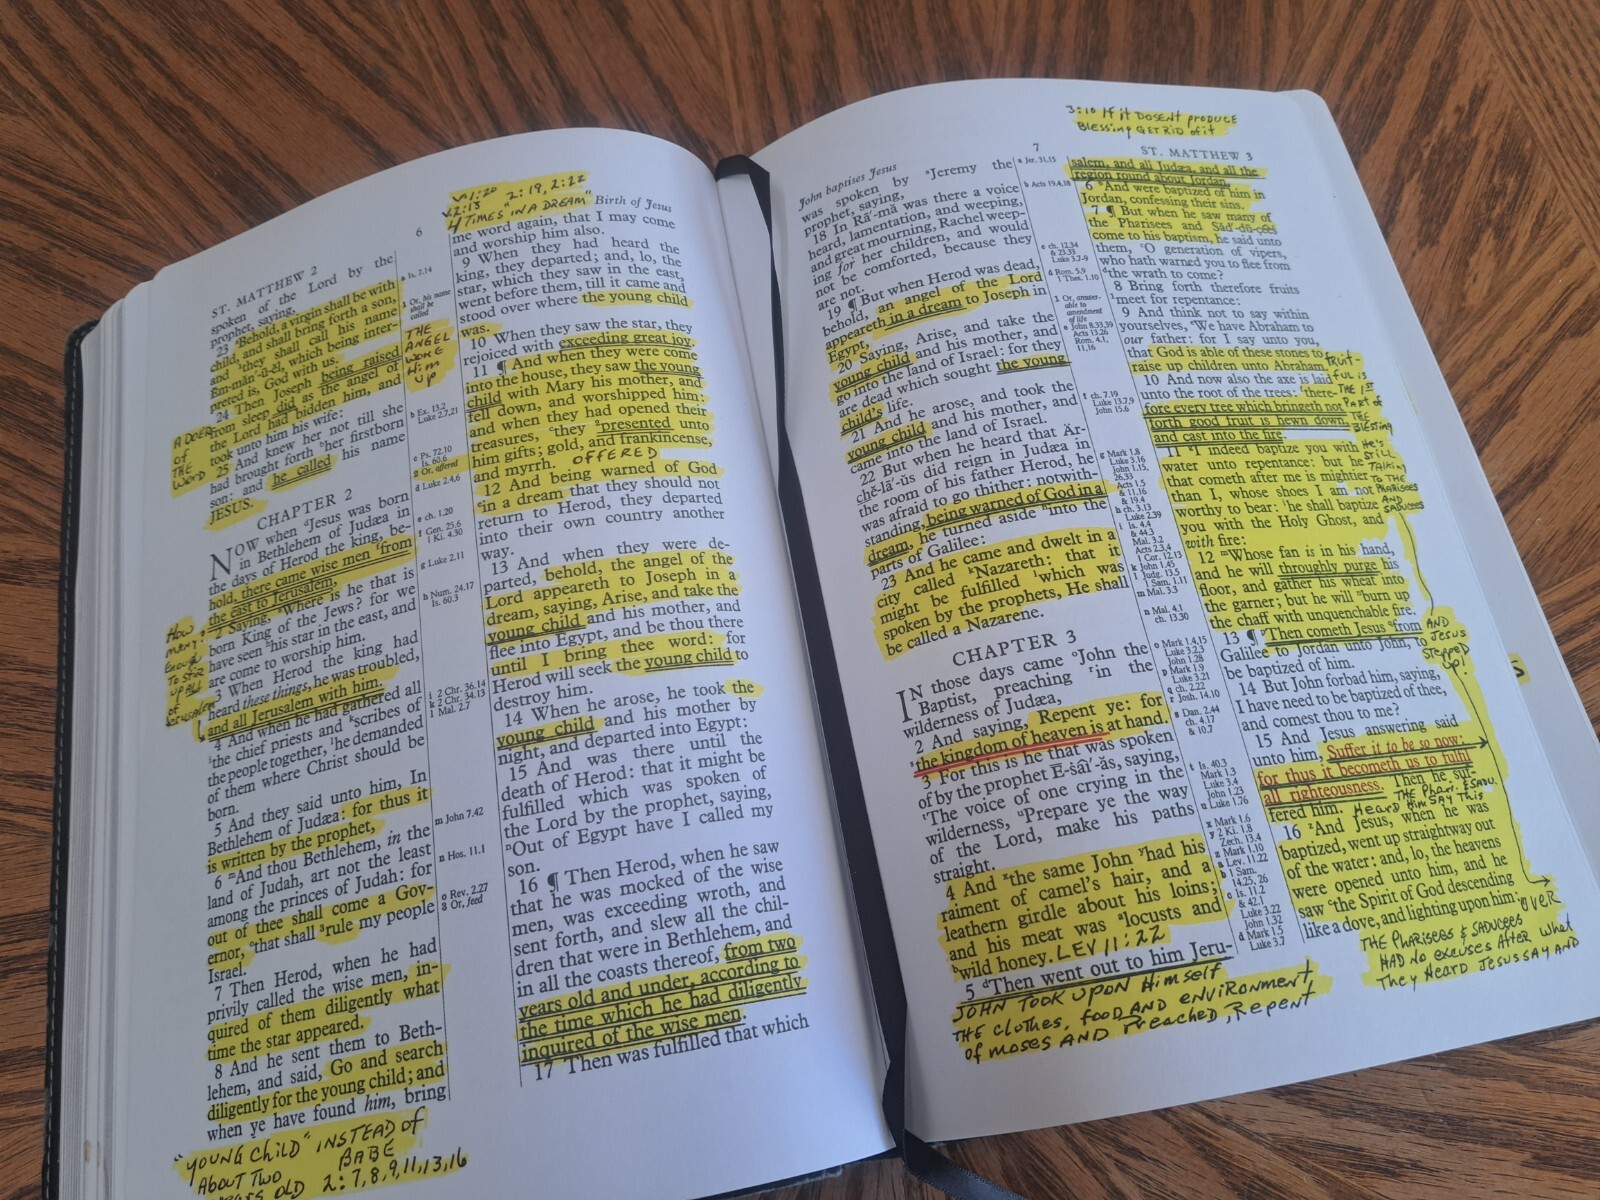 ST. MATTHEW 2
6
Birth of Jesus
V. 1:20 2:19, 2:22
V. 2:13
4 TIMES "IN A DREAM"
spoken of the Lord by the
prophet, saying,
23 Behold, a virgin shall be with
child, and shall bring forth a son,
and they shall call his name
Em-măn´-ū-ĕl, which being inter-
preted is, God with us.
24 Then Joseph being raised
from sleep did as the angel of
the Lord had bidden him, and
took unto him his wife:
25 And knew her not till she
had brought forth her firstborn
son: and he called his name
JESUS.
THE
ANGEL
WOKE
HIM
UP
A DOER
of
THE
WORD
CHAPTER 2
NOW when Jesus was born
in Bethlehem of Judæa in
the days of Herod the king, be-
hold, there came wise men from
the east to Jerusalem,
2 Saying, Where is he that is
born King of the Jews? for we
have seen his star in the east, and
are come to worship him.
3 When Herod the king had
heard these things, he was troubled,
and all Jerusalem with him.
4 And when he had gathered all
the chief priests and scribes of
the people together, he demanded
of them where Christ should be
born.
5 And they said unto him, In
Bethlehem of Judæa: for thus it
is written by the prophet,
6 And thou Bethlehem, in the
land of Judah, art not the least
among the princes of Judah: for
out of thee shall come a Gov-
ernor, that shall rule my people
Israel.
7 Then Herod, when he had
privily called the wise men, in-
quired of them diligently what
time the star appeared.
8 And he sent them to Beth-
lehem, and said, Go and search
diligently for the young child; and
when ye have found him, bring
How
many?
Enough
To STIR
up ALL
of
Jerusalem
"YOUNG CHILD" INSTEAD of
BABE
ABOUT TWO
OLD 2:7,8,9,11,13,16
a Is. 7.14
1 Or, his name
shall be
called
b Ex. 13.2
Luke 2.7,21
c Ps. 72.10
Is. 60.6
9 Or, offered
d Luke 2.4,6
e ch. 1.20
f Gen. 25.6
1 Ki. 4.30
g Luke 2.11
h Num. 24.17
Is. 60.3
i 2 Chr. 36.14
k 2 Chr. 34.13
l Mal. 2.7
m John 7.42
n Hos. 11.1
o Rev. 2.27
8 Or, feed
me word again, that I may come
and worship him also.
9 When they had heard the
king, they departed; and, lo, the
star, which they saw in the east,
went before them, till it came and
stood over where the young child
was.
10 When they saw the star, they
rejoiced with exceeding great joy.
11 ¶ And when they were come
into the house, they saw the young
child with Mary his mother, and
fell down, and worshipped him:
and when they had opened their
treasures, they presented unto
him gifts; gold, and frankincense,
and myrrh. OFFERED
12 And being warned of God
in a dream that they should not
return to Herod, they departed
into their own country another
way.
13 And when they were de-
parted, behold, the angel of the
Lord appeareth to Joseph in a
dream, saying, Arise, and take the
young child and his mother, and
flee into Egypt, and be thou there
until I bring thee word: for
Herod will seek the young child to
destroy him.
14 When he arose, he took the
young child and his mother by
night, and departed into Egypt:
15 And was there until the
death of Herod: that it might be
fulfilled which was spoken of
the Lord by the prophet, saying,
Out of Egypt have I called my
son.
16 ¶ Then Herod, when he saw
that he was mocked of the wise
men, was exceeding wroth, and
sent forth, and slew all the chil-
dren that were in Bethlehem, and
in all the coasts thereof, from two
years old and under, according to
the time which he had diligently
inquired of the wise men.
17 Then was fulfilled that which
John baptises Jesus
7
ST. MATTHEW 3
3:10 If it DOSENT produce
Blessing GET RID of it
was spoken by Jeremy the
prophet, saying,
18 In Rā´-mă was there a voice
heard, lamentation, and weeping,
and great mourning, Rachel weep-
ing for her children, and would
not be comforted, because they
are not.
19 ¶ But when Herod was dead,
behold, an angel of the Lord
appeareth in a dream to Joseph in
Egypt,
20 Saying, Arise, and take the
young child and his mother, and
go into the land of Israel: for they
are dead which sought the young
child's life.
21 And he arose, and took the
young child and his mother, and
came into the land of Israel.
22 But when he heard that Är-
chĕ-lā´-ŭs did reign in Judæa in
the room of his father Herod, he
was afraid to go thither: notwith-
standing, being warned of God in a
dream, he turned aside into the
parts of Galilee:
23 And he came and dwelt in a
city called Nazareth: that it
might be fulfilled which was
spoken by the prophets, He shall
be called a Nazarene.
CHAPTER 3
IN those days came John the
Baptist, preaching in the
wilderness of Judæa,
2 And saying, Repent ye: for
the kingdom of heaven is at hand.
3 For this is he that was spoken
of by the prophet Ē-šāi´-ăs, saying,
The voice of one crying in the
wilderness, Prepare ye the way
of the Lord, make his paths
straight.
4 And the same John had his
raiment of camel's hair, and a
leathern girdle about his loins;
and his meat was locusts and
wild honey. LEV 11:22
5 Then went out to him Jeru-
JOHN TOOK UPON HIMSELF
THE CLOTHES, FOOD AND ENVIRONMENT
of MOSES AND Preached, Repent
a Jer. 31.15
b Acts 19.4,18
c ch. 12.34
& 23.33
Luke 3.7-9
d Rom. 5.9
1 Thes. 1.10
1 Or, answer-
able to
amendment
of life
e John 8.33,39
Acts 13.26
Rom. 4.1,
11,16
f ch. 7.19
Luke 13.7,9
John 15.6
g Mark 1.8
Luke 3.16
John 1.15,
26,33
Acts 1.5
& 11.16
& 19.4
h ch. 3.13
Luke 2.39
i Is. 4.4
& 44.3
Mal. 3.2
Acts 2.3,4
1 Cor. 12.13
k John 1.45
l Judg. 13.5
1 Sam. 1.11
m Mal. 3.3
n Mal. 4.1
ch. 13.30
o Mark 1.4,15
Luke 3.2,3
John 1.28
p Mark 1.9
Luke 3.21
q ch. 2.22
r Josh. 14.10
s Dan. 2.44
ch. 4.17
& 10.7
t Is. 40.3
Mark 1.3
Luke 3.4
John 1.23
u Luke 1.76
x Mark 1.6
y 2 Ki. 1.8
Zech. 13.4
z Mark 1.10
a Lev. 11.22
b 1 Sam.
14.25, 26
c Is. 11.2
& 42.1
Luke 3.22
John 1.32
d Mark 1.5
Luke 3.7
salem, and all Judæa, and all the
region round about Jordan,
6 And were baptized of him in
Jordan, confessing their sins.
7 ¶ But when he saw many of
the Pharisees and Săd´-dū-çēēs
come to his baptism, he said unto
them, O generation of vipers,
who hath warned you to flee from
the wrath to come?
8 Bring forth therefore fruits
meet for repentance:
9 And think not to say within
yourselves, We have Abraham to
our father: for I say unto you,
that God is able of these stones to
raise up children unto Abraham.
10 And now also the axe is laid
unto the root of the trees: there-
fore every tree which bringeth not
forth good fruit is hewn down,
and cast into the fire.
11 I indeed baptize you with
water unto repentance: but he
that cometh after me is mightier
than I, whose shoes I am not
worthy to bear: he shall baptize
you with the Holy Ghost, and
with fire:
12 Whose fan is in his hand,
and he will throughly purge his
floor, and gather his wheat into
the garner; but he will burn up
the chaff with unquenchable fire.
13 ¶ Then cometh Jesus from
Galilee to Jordan unto John, to
be baptized of him.
14 But John forbad him, saying,
I have need to be baptized of thee,
and comest thou to me?
15 And Jesus answering said
unto him, Suffer it to be so now:
for thus it becometh us to fulfil
all righteousness. Then he suf-
fered him.
16 And Jesus, when he was
baptized, went up straightway out
of the water: and, lo, the heavens
were opened unto him, and he
saw the Spirit of God descending
like a dove, and lighting upon him:
FRUIT-
FUL IS
THE 1ST
PART OF
THE
BLESSING
HE'S
STILL
TALKING
TO THE
PHARISEES
AND
SADUCES
AND
JESUS
STEPPED
UP!
THE PHAR. & SADU.
HEARD HIM SAY THIS
OVER
THE PHARISEES & SADUCEES
HAD NO EXCUSES AFTER WHAT
THEY HEARD JESUS SAY AND